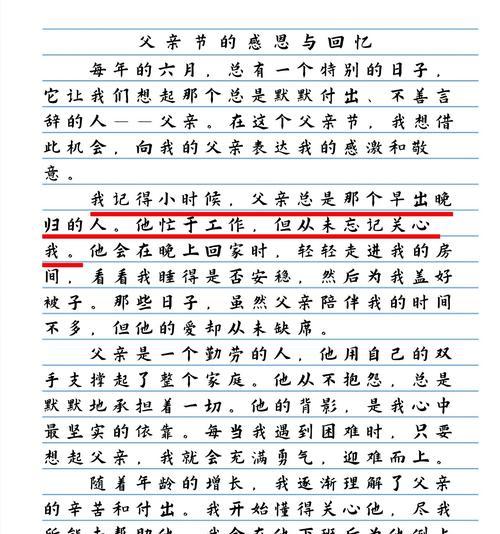 父亲节的感恩与回忆
每年的六月，总有一个特别的日子，
它让我们想起那个总是默默付出、不善言
辞的人——父亲。在这个父亲节，我想借
此机会，向我的父亲表达我的感激和敬
意。
我记得小时候，父亲总是那个早出晚
归的人。他忙于工作，但从未忘记关心
我。他会在晚上回家时，轻轻走进我的房
间，看看我睡得是否安稳，然后为我盖好
被子。那些日子，虽然父亲陪伴我的时间
不多，但他的爱却从未缺席。
父亲是一个勤劳的人，他用自己的双
手支撑起了整个家庭。他从不抱怨，总是
默默地承担着一切。他的背影，是我心中
最坚实的依靠。每当我遇到困难时，只要
想起父亲，我就会充满勇气，迎难而上。
随着年龄的增长，我逐渐理解了父亲
的辛苦和付出。我开始懂得关心他，尽我
所能去帮助他。我会在他下班后为他倒上